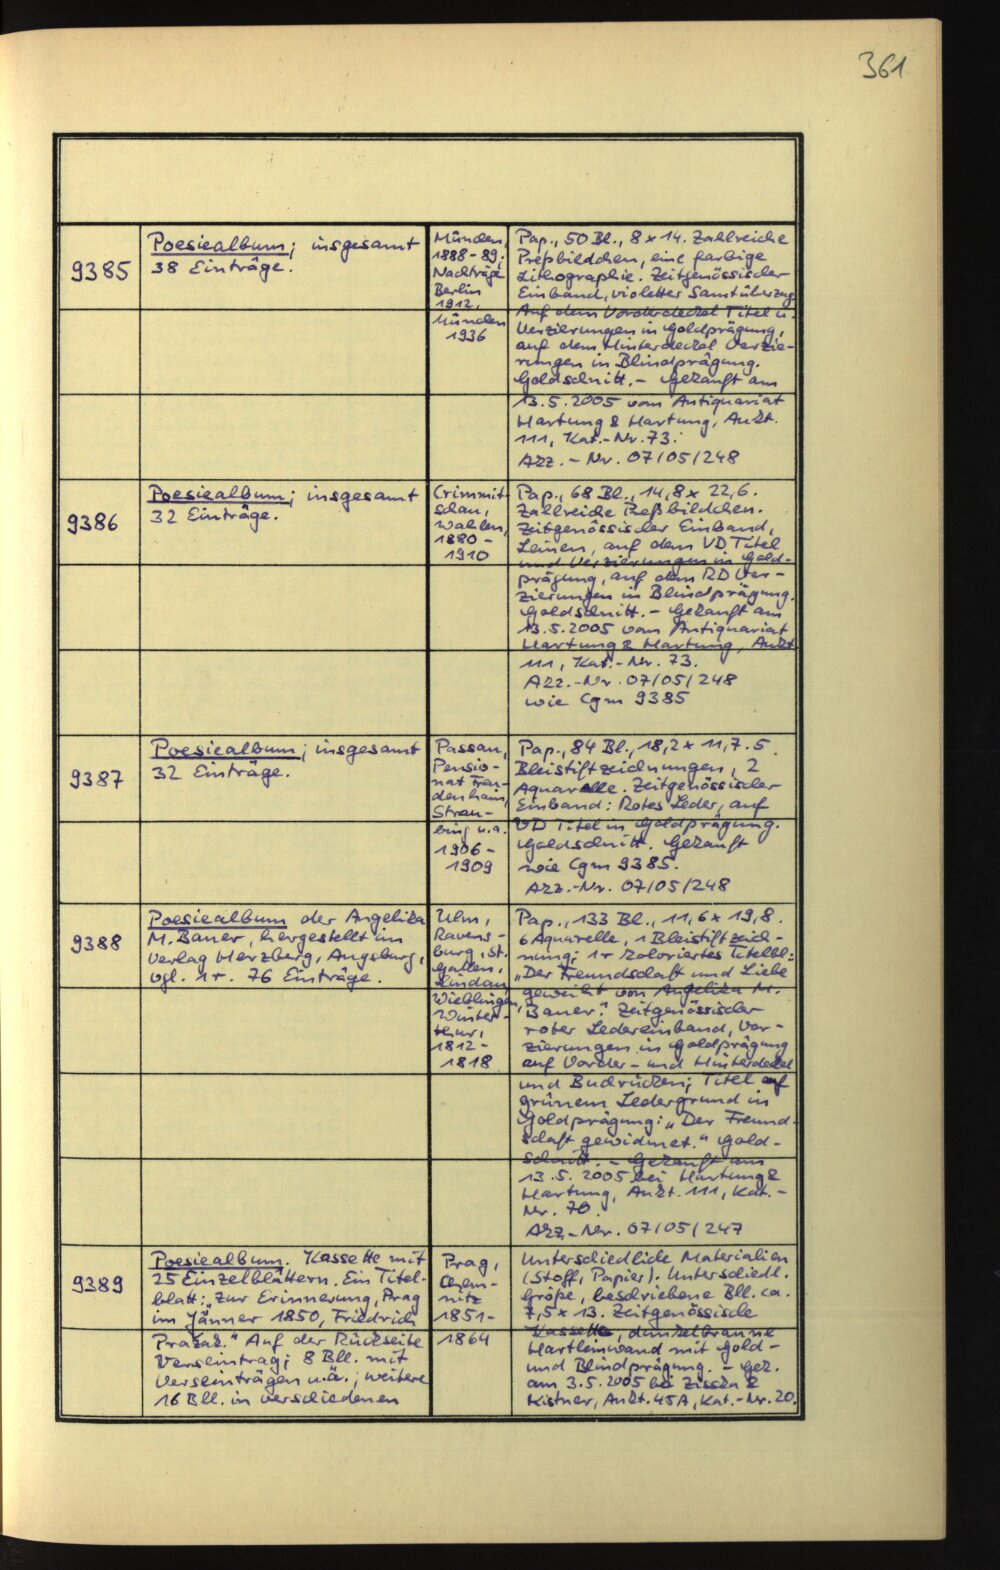 361
9385
Poesiealbum; insgesamt
38 Einträge.
München,
1888-89;
Nachträge
Berlin
1912,
München
1936
Pap., 50 Bl., 8 x 14. Zahlreiche
Preßbildchen, eine farbige
Lithographie. Zeitgenössischer
Einband, violetter Samtüberzug.
Auf dem Vorderdeckel Titel u.
Verzierungen in Goldprägung,
auf dem Hinterdeckel Verzie-
rungen in Blindprägung.
Goldschnitt. – Gekauft am
13.5.2005 vom Antiquariat
Hartung & Hartung, Aukt.
111, Kat.-Nr. 73.
Akz.-Nr. 07/05/248
9386
Poesiealbum; insgesamt
32 Einträge.
Crimmit-
schau,
Wahlen,
1880-
1910
Pap., 68 Bl., 14,8 x 22,6.
Zahlreiche Preßbildchen.
Zeitgenössischer Einband,
Leinen, auf dem VD Titel
und Verzierungen in Gold-
prägung, auf dem RD Ver-
zierungen in Blindprägung.
Goldschnitt. – Gekauft am
13.5.2005 vom Antiquariat
Hartung & Hartung, Aukt.
111, Kat.-Nr. 73.
Akz.-Nr. 07/05/248
wie Cgm 9385
9387
Poesiealbum; insgesamt
32 Einträge.
Passau,
Pensio-
nat Freu-
denhain,
Strau-
bing u.a.
1906-
1909
Pap., 84 Bl., 18,2 x 11,7. 5
Bleistiftzeichnungen, 2
Aquarelle. Zeitgenössischer
Einband: Rotes Leder, auf
VD Titel in Goldprägung.
Goldschnitt. Gekauft
wie Cgm 9385.
Akz.-Nr. 07/05/248
9388
Poesiealbum der Angelika
M. Bauer, hergestellt im
Verlag Herzberg, Augsburg,
vgl. 1r. 76 Einträge.
Ulm,
Ravens-
burg, St.
Gallen,
Lindau,
Wieblingen,
Winter-
thur,
1812-
1818
Pap., 133 Bl., 11,6 x 19,8.
6 Aquarelle, 1 Bleistiftzeich-
nung; 1r koloriertes Titelbl.:
„Der Freundschaft und Liebe
geweiht von Angelika M.
Bauer". Zeitgenössischer
roter Ledereinband, Ver-
zierungen in Goldprägung
auf Vorder- und Hinterdeckel
und Buchrücken; Titel auf
grünem Ledergrund in
Goldprägung: „Der Freund-
schaft gewidmet." Gold-
schnitt. – Gekauft am
13.5.2005 bei Hartung &
Hartung, Aukt. 111, Kat.-
Nr. 70.
Akz.-Nr. 07/05/247
9389
Poesiealbum. Kassette mit
25 Einzelblättern. Ein Titel-
blatt: „Zur Erinnerung, Prag
im Jänner 1850, Friedrich
Pražak." Auf der Rückseite
Verseintrag; 8 Bll. mit
Verseinträgen u.ä.; weitere
16 Bll. in verschiedenen
Prag,
Chem-
nitz
1851-
1864
Unterschiedliche Materialien
(Stoff, Papier). Unterschiedl.
Größe, beschriebene Bll. ca.
7,5 x 13. Zeitgenössische
Kassette, dunkelbraune
Hartleinwand mit Gold-
und Blindprägung. – Gek.
am 3.5.2005 bei Zisska &
Kistner, Aukt. 45A, Kat.-Nr. 20.